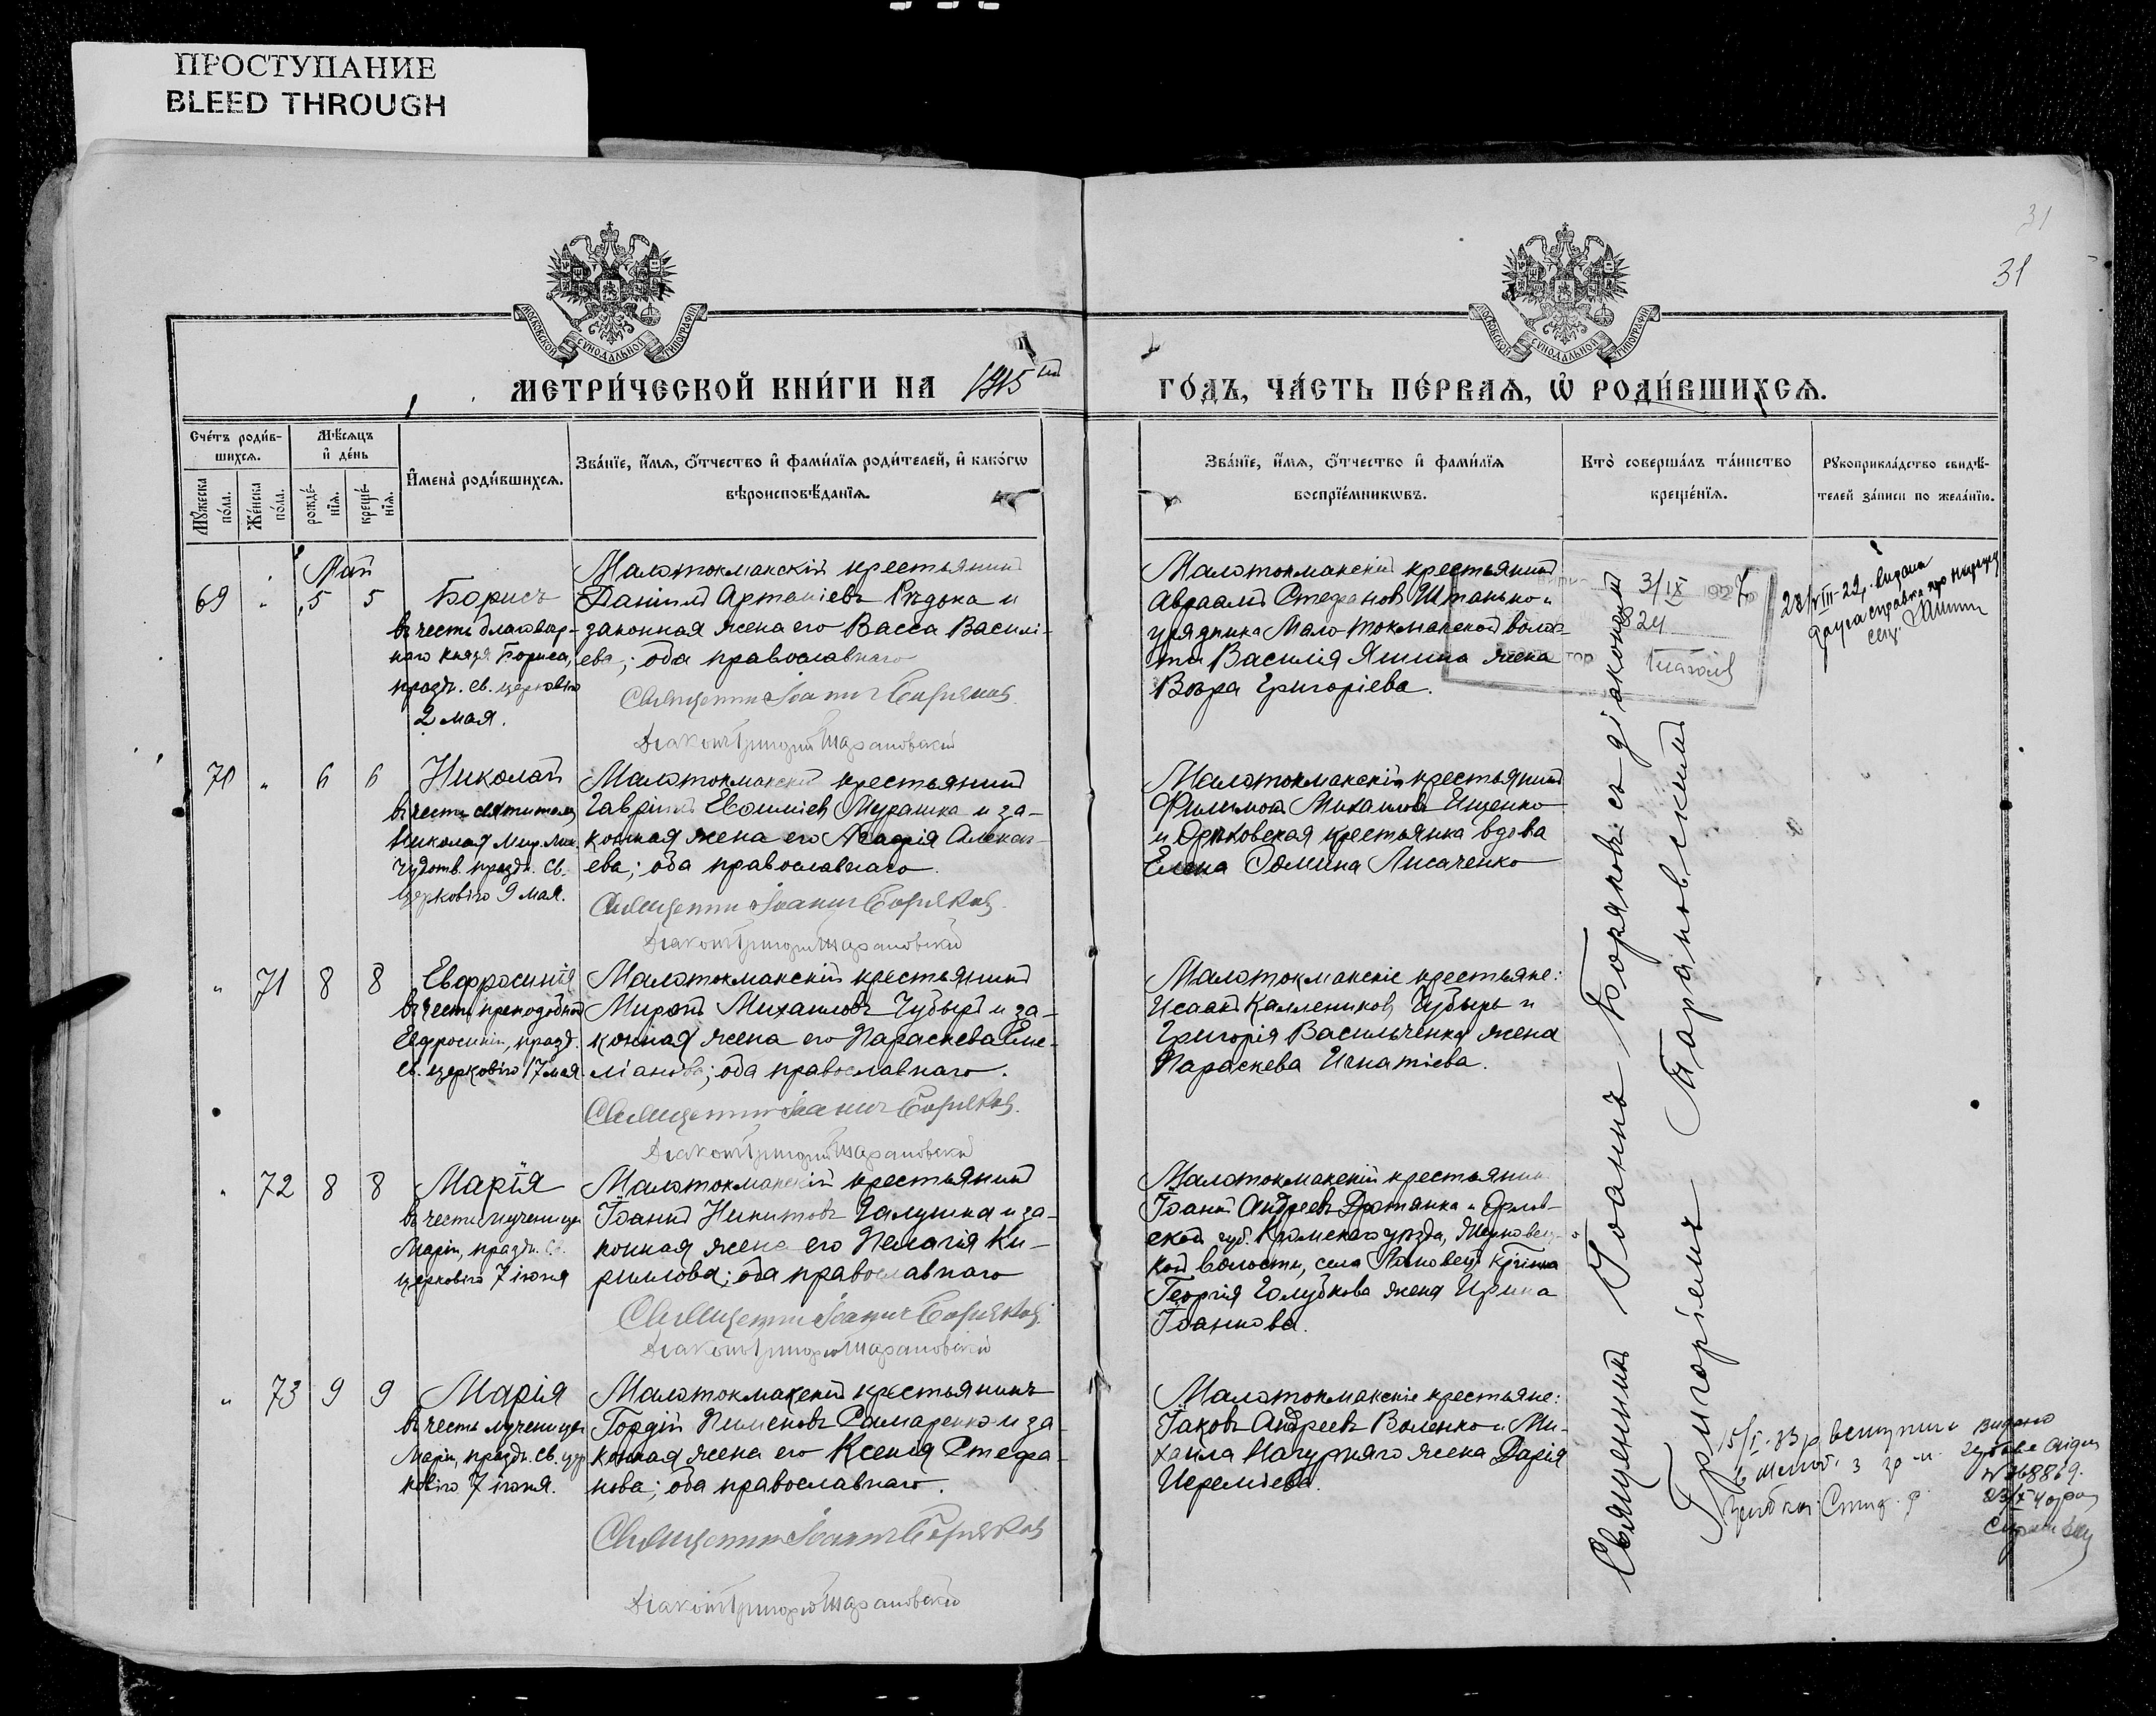 ПРОСТУПАНИЕ
BLEED THROUGH
31
31
МОСКОВСКОЙ СѴНОДАЛЬНОЙ ТИПОГРАФІИ
МОСКОВСКОЙ СѴНОДАЛЬНОЙ ТИПОГРАФІИ
МЕТРИ́ЧЕСКОЙ КНИ́ГИ НА 1915 ый
ГО́ДЪ, ЧА́СТЬ ПЕ́РВАѦ, Ѡ҆ РОДИ́ВШИХСѦ.
Сче́тъ роди́в-
шихсѧ.
Мꙋ́жеска по́ла.
Же́нска по́ла.
Мѣ́сѧцъ
и҆ де́нь
рожде́-
нїѧ.
креще́-
нїѧ.
И҆мена̀ роди́вшихсѧ.
Зва́нїе, и҆́мѧ, ѻ҆́тчество и҆ фами́лїѧ роди́телей, и҆ како́гѡ
вѣроисповѣ́данїѧ.
Зва́нїе, и҆́мѧ, ѻ҆́тчество и҆ фами́лїѧ
воспрїе́мникѡвъ.
Кто̀ соверша́лъ та́инство
креще́нїѧ.
Рꙋкоприкла́дство свидѣ́-
телей за́писи по жела́нїю.
Май
69 " 5 5
Борисъ
въ честь благовѣр-
наго князя Бориса,
празд. св. церковію
2 мая.
Малотокмакскій крестьянинъ
Даніилъ Артоміевъ Рѣдока и
законная жена его Васса Василі-
ева; оба православнаго
Священникъ Іоаннъ Боряковъ
Діаконъ Григорій Тарановскій
Малотокмакскій крестьянинъ
Авраамъ Стефановъ Штанько и
урядника Мало-Токмакской волос-
ти Василія Яшина жена
Вѣра Григоріева.
3/IX 1927
24
28/VIII-29. видана
друга справка
70 " 6 6
Николай
въ честь святителя
Николая Мир. Лик.
чудотв. празд. св.
церковію 9 мая.
Малотокмакскій крестьянинъ
Гавріилъ Евѳиміевъ Мурашка и за-
конная жена его Агафія Алексі-
ева; оба православнаго.
Священникъ Іоаннъ Боряковъ
Діаконъ Григорій Тарановскій
Малотокмакскій крестьянинъ
Филимонъ Михаиловъ Ищенко
и Орѣховская крестьянка вдова
Елена Ѳомина Лисаченко
" 71 8 8
Евфросинія
въ честь преподобной
Евфросиніи, празд.
св. церковію 17 мая.
Малотокмакскій крестьянинъ
Миронъ Михаиловъ Чубырь и за-
конная жена его Параскева Еме-
ліанова; оба православнаго.
Священникъ Іоаннъ Боряковъ
Діаконъ Григорій Тарановскій
Малотокмакскіе крестьяне:
Исаакъ Каллениковъ Чубырь и
Григорія Васильченка жена
Параскева Игнатіева.
" 72 8 8
Марія
въ честь мученицы
Маріи, празд. св.
церковію 7 іюня
Малотокмакскій крестьянинъ
Іоаннъ Никитовъ Галушка и за-
конная жена его Пелагія Ки-
риллова; оба православнаго
Священникъ Іоаннъ Боряковъ
Діаконъ Григорій Тарановскій
Малотокмакскій крестьянинъ
Іоаннъ Андреевъ Дротянка и Орлов-
ской губ. Кромскаго уѣзда,
кой волости, села
Георгія Голубкова жена Ирина
Іоаннова.
" 73 9 9
Марія
въ честь мученицы
Маріи, празд. св. цер-
ковію 7 іюня.
Малотокмакскій крестьянинъ
Гордій Пименовъ Самаренко и за-
конная жена его Ксенія Стефа-
нова; оба православнаго.
Священникъ Іоаннъ Боряковъ
Діаконъ Григорій Тарановскій
Малотокмакскіе крестьяне:
Іаковъ Андреевъ Воленко и Ми-
хаила Мачурняго жена Дарія
Іереміева.
Священникъ Іоаннъ Боряковъ съ діакономъ
Григоріемъ Тарановскимъ
15/I-33 р. вступила
в шлюб з гр-м
Видано
№ 368869.